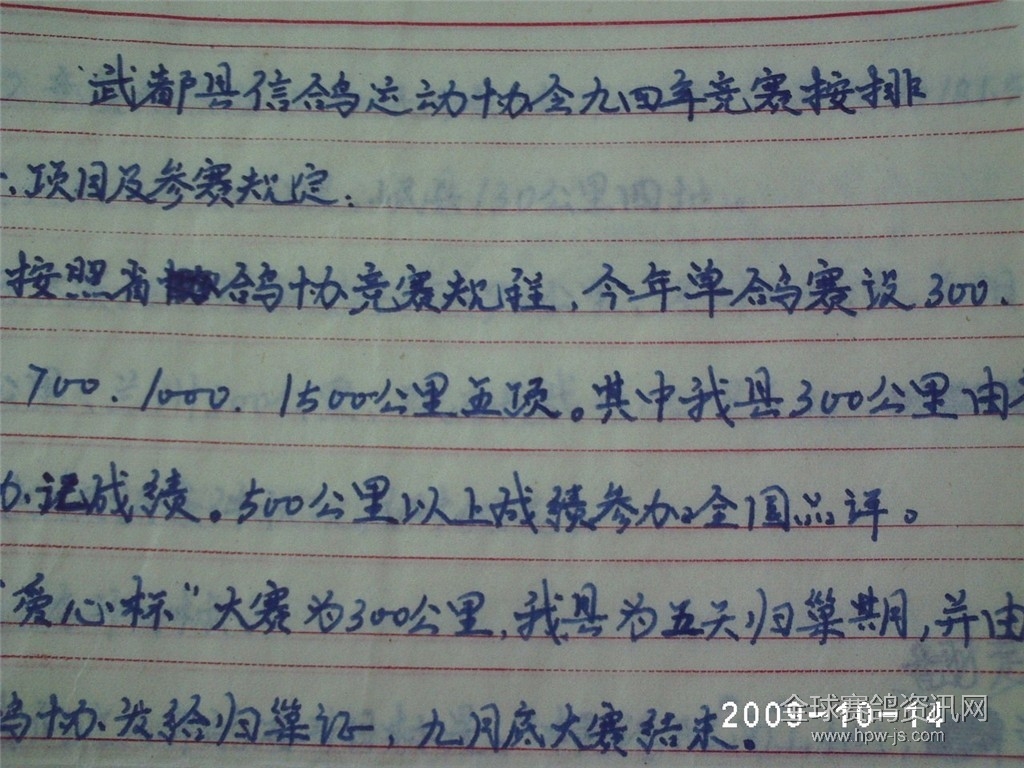 武都县信鸽运动协会九四年竞赛按排
项目及参赛规定:
按照省鸽协竞赛规程,今年单鸽赛设300.
700.1000.1500公里五项。其中我县300公里由
办记成绩。500公里以上成绩参加全国品评。
"爱心杯"大赛为300公里,我县为五关归巢期,并由
鸽协发给归巢证,九月底大赛结束。
2009-10-14
全球赛鸽资讯网
www.hpw-js.com